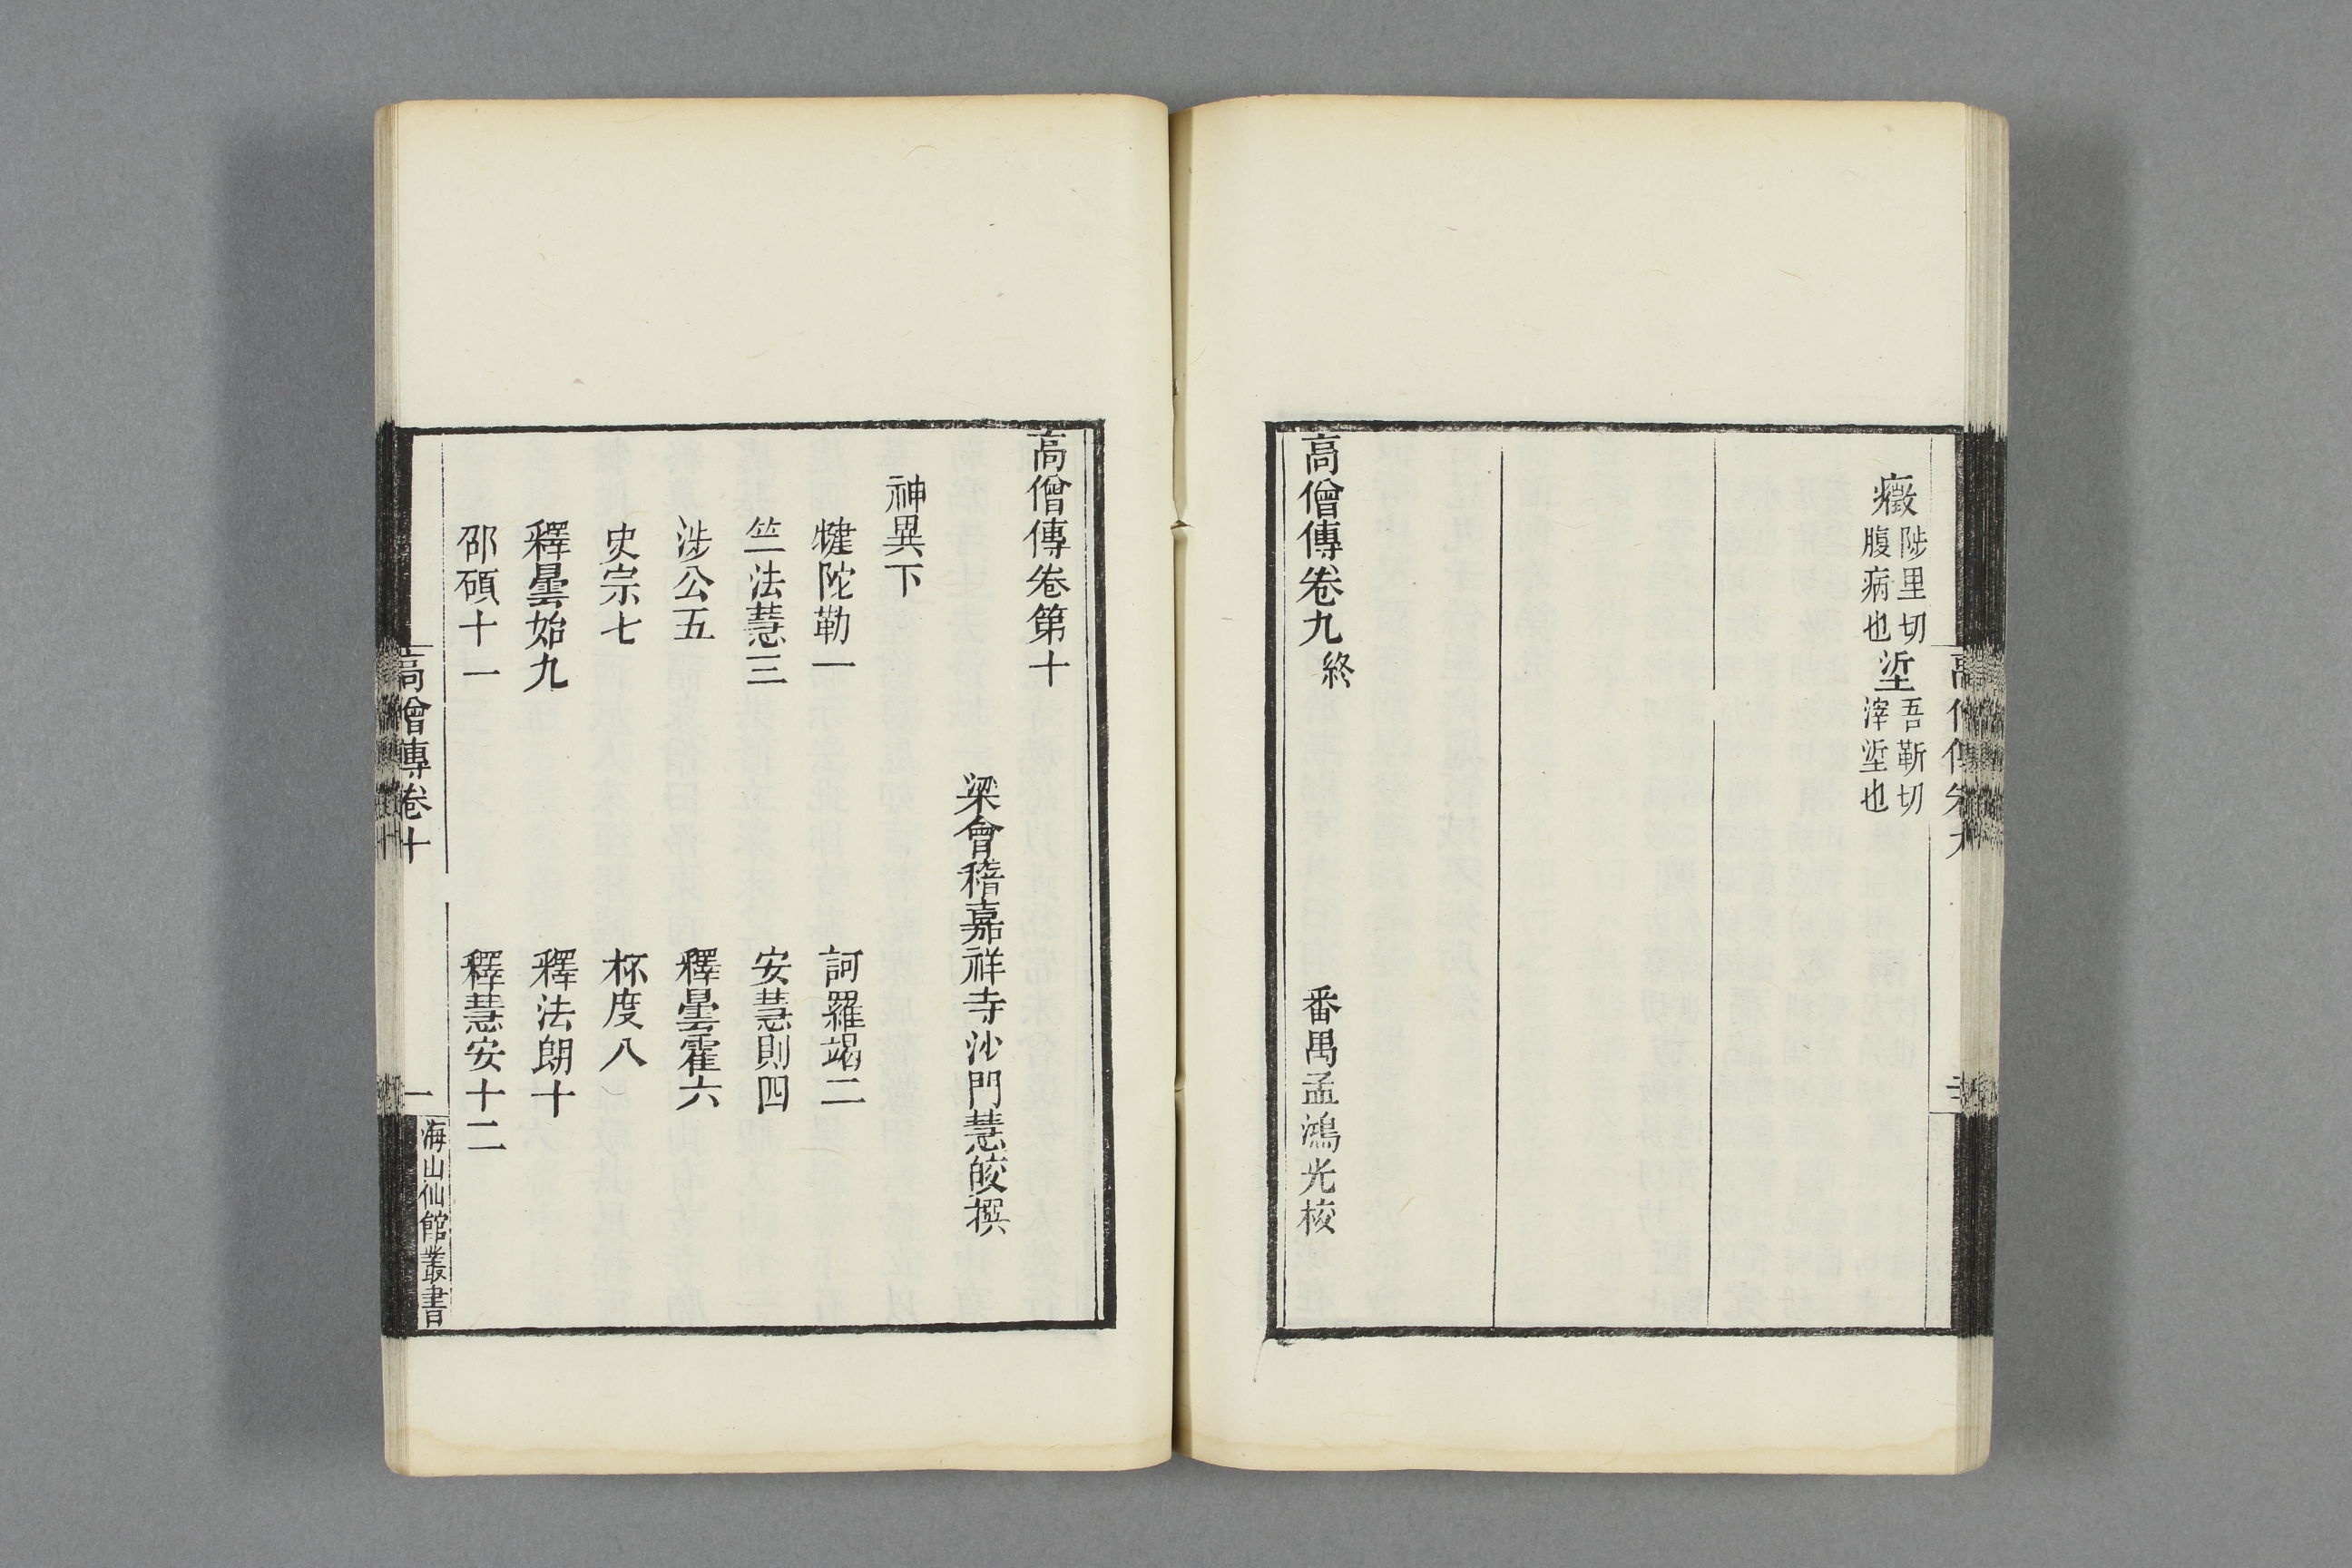 癥陟里切腹病也垽吾靳切滓垽也
高僧傳卷九終
番禺孟鴻光校
高僧傳卷第十
梁會稽嘉祥寺沙門慧皎撰
神異下
犍陀勒一
訶羅竭二
竺法慧三
安慧則四
涉公五
釋曇霍六
史宗七
杯度八
釋曇始九
釋法朗十
邵碩十一
釋慧安十二
高僧傳卷十
一
海山仙館叢書